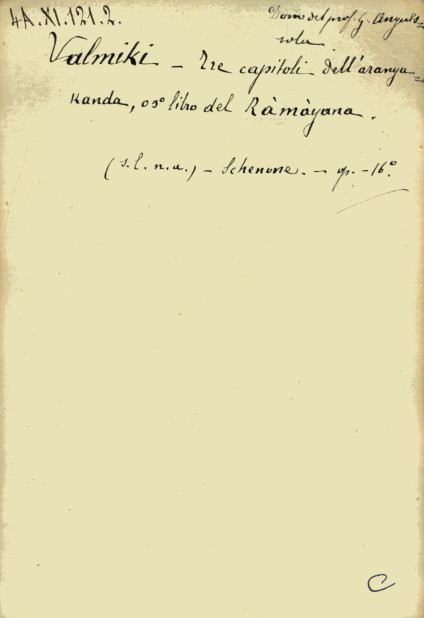 4A.XI.121.2.
Dono del prof. G. Anguis-
sola.
Valmiki - Tre capitoli dell'aranya-
Kanda, o 3° libro del Ràmàyana.
(s.l.n.a.) - Schenone. - op. - 16°.
C